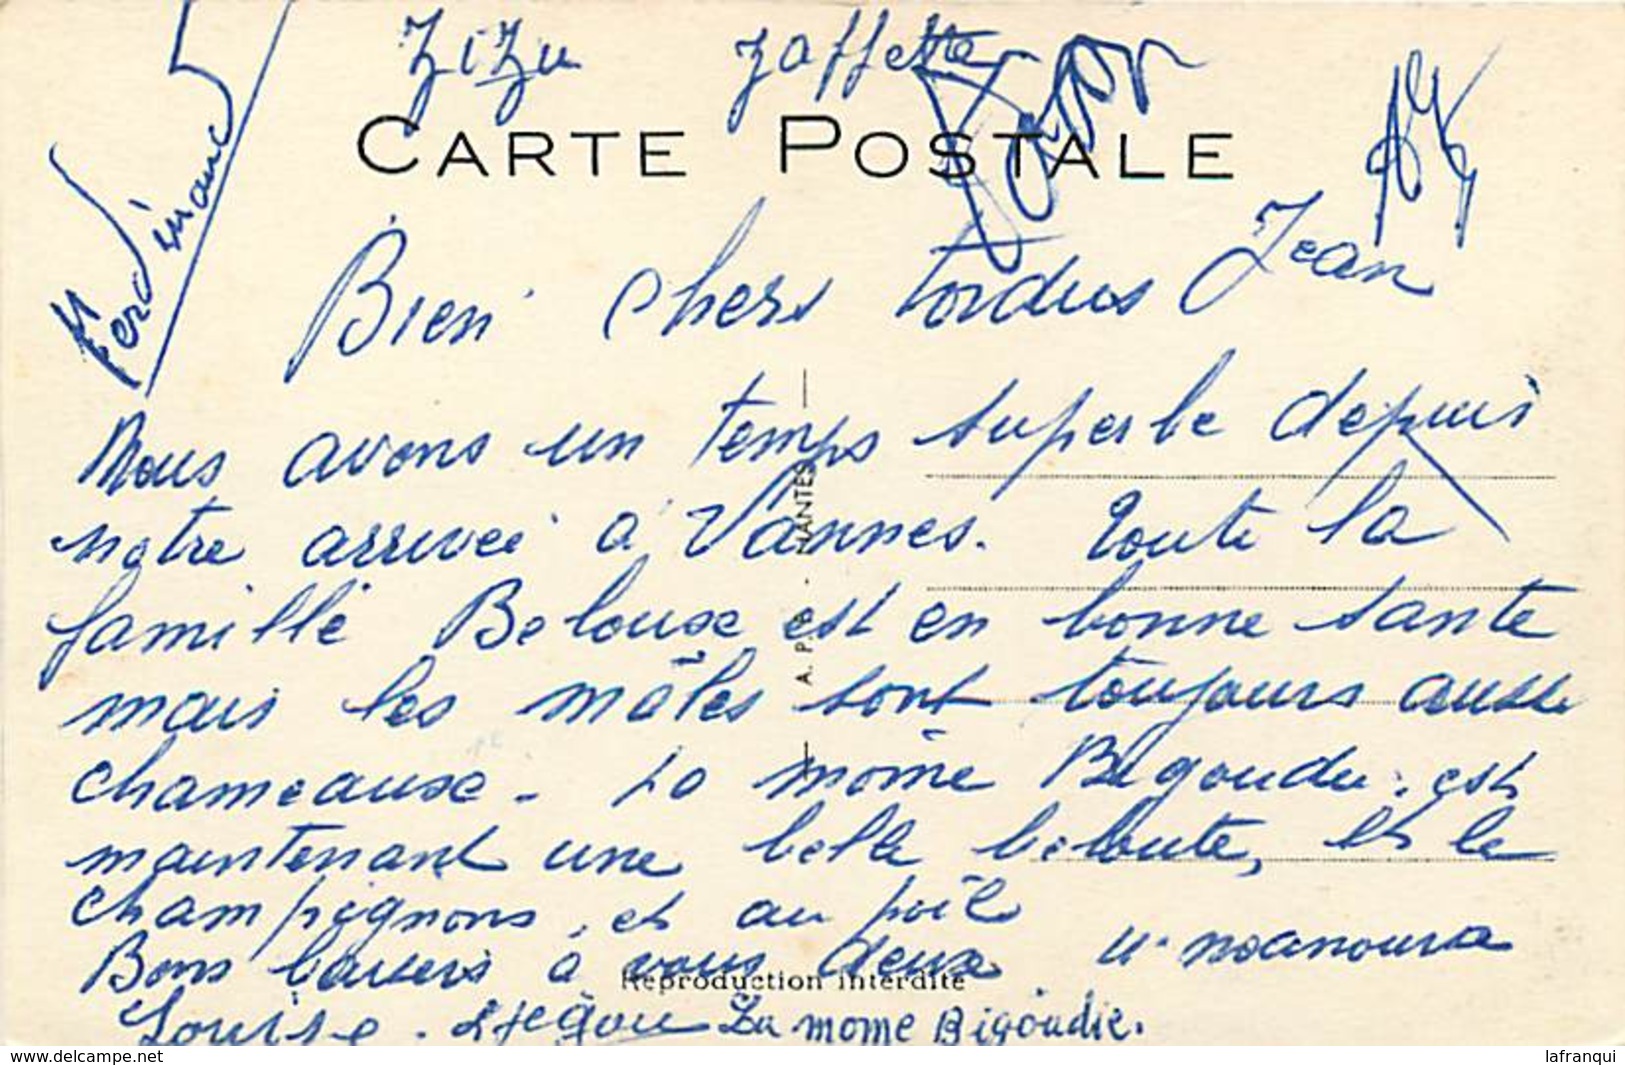 Zizu Zaffette
CARTE POSTALE
Ferdinand
Jean
Bien chers tordus
Nous avons un temps superbe depuis
notre arrivée à Vannes. Toute la
famille Belouse est en bonne santé
mais les mâles sont toujours aussi
chameause. La môme Bigoudie. est
maintenant une belle beloute, et le
champignons, est au poil
Bons baisers à vous deux
Louise. La mome Bigoudie.
A. P. - NANTES
Reproduction interdite
lafranqui